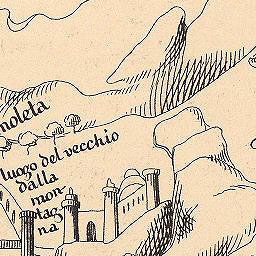 moleta
luogo del vecchio
dalla
mon
tag
na